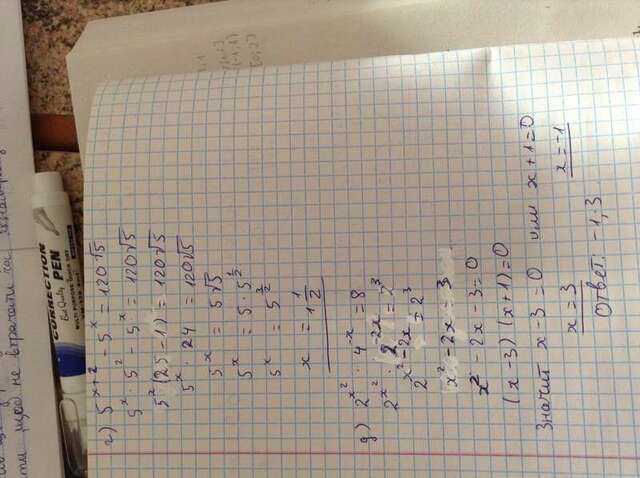 не втрачати час
CORRECTION
PEN
MULTI-PURPOSE QUICK DRY
г) 5^{x+2} - 5^x = 120√5
5^x · 5^2 - 5^x = 120√5
5^x (25 - 1) = 120√5
5^x · 24 = 120√5
5^x = 5√5
5^x = 5 · 5^{1/2}
5^x = 5^{3/2}
x = 1 1/2
д) 2^{x^2} · 4^{-x} = 8
2^{x^2} · 2^{-2x} = 2^3
2^{x^2 - 2x} = 2^3
x^2 - 2x = 3
x^2 - 2x - 3 = 0
(x - 3) (x + 1) = 0
Значит x - 3 = 0 или x + 1 = 0
x = 3 x = -1
Ответ: -1; 3